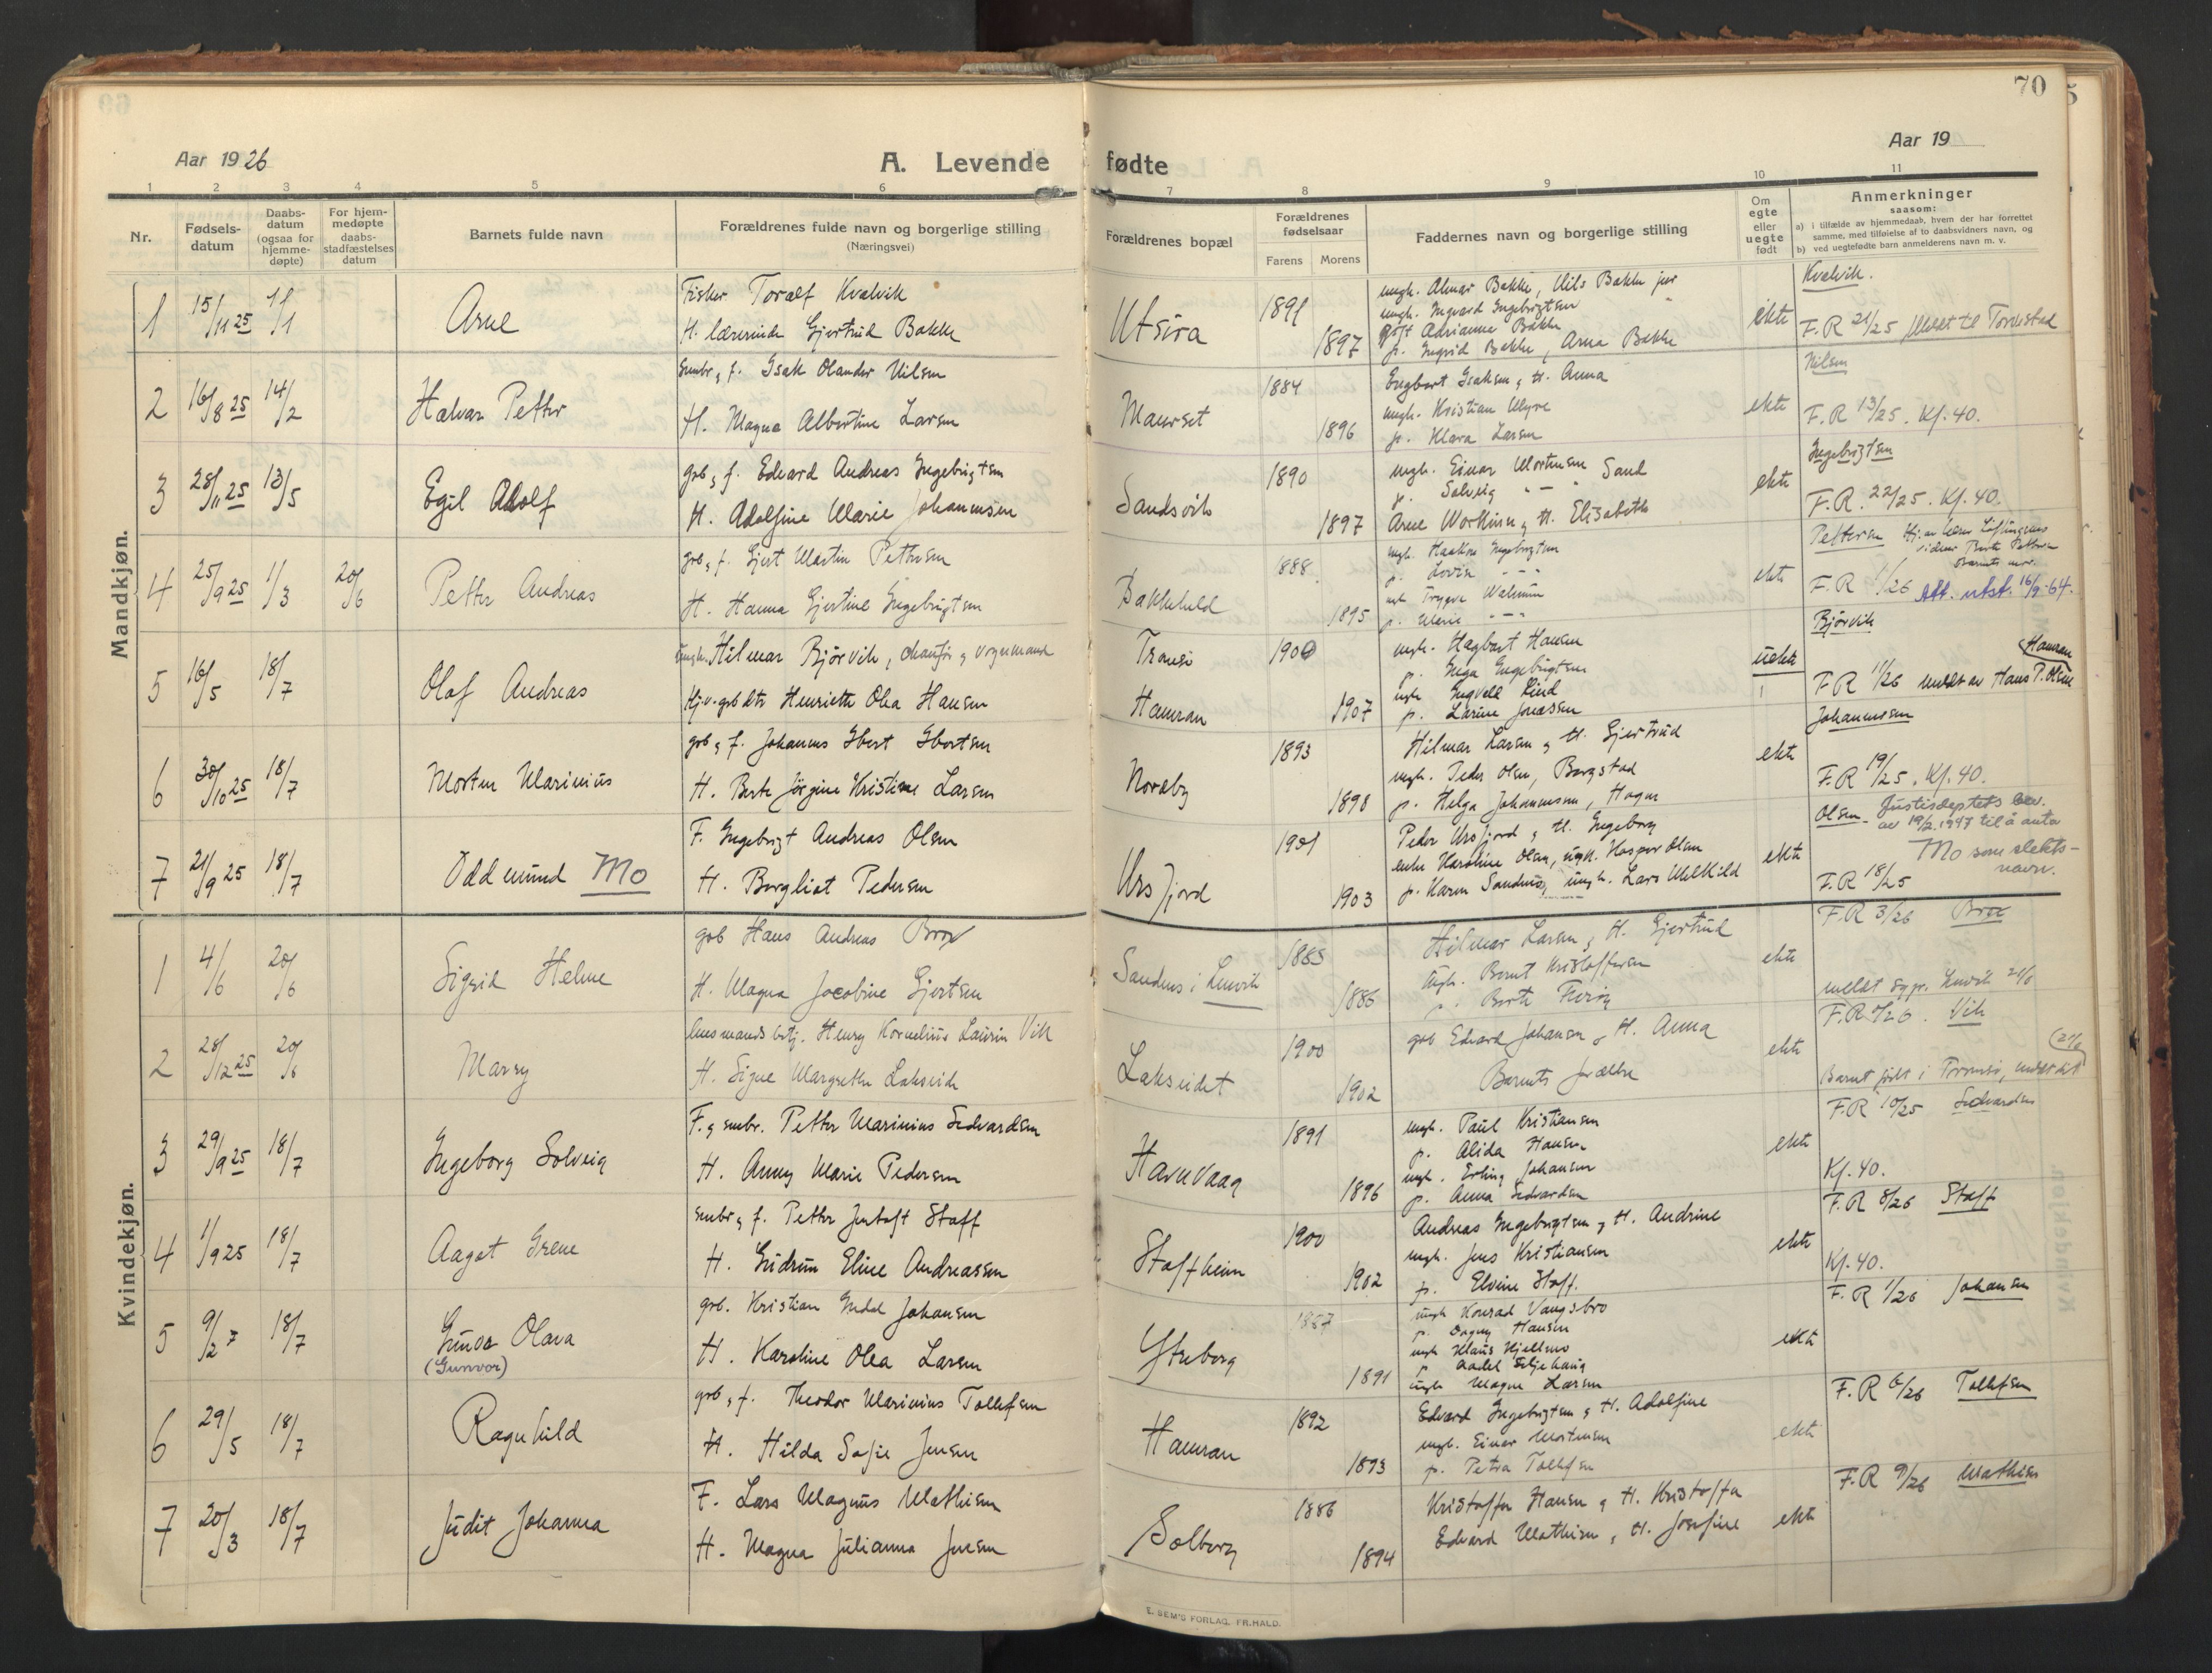 70
Aar 1926
A. Levende fødte
Aar 19
1 2 3 4 5 6 7 8 9 10 11
Nr.
Fødsels-
datum
Daabs-
datum
(ogsaa for
hjemme-
døpte)
For hjem-
medøpte
daabs-
stadfæstelses
datum
Barnets fulde navn
Forældrenes fulde navn og borgerlige stilling
(Næringsvei)
Forældrenes bopæl
Forældrenes
fødselsaar
Farens Morens
Faddernes navn og borgerlige stilling
Om
egte
eller
uegte
født
Anmerkninger
saasom:
a) i tilfælde av hjemmedaab, hvem der har forrettet
samme, med tilføielse af to daabsvidners navn, og
b) ved uegtefødte barn anmelderens navn m. v.
Mandkjøn.
1 15/11 25 1/1 Arne
Fisker Toralf Kvalvik
H. lærerinde Gjertrud Bakke
Utsira 1891 1897
ungk. Almar Bakke, Nils Bakke jur
ungk. Ingvard Ingebrigtsen
gift Adrianne Bakke
p. Ingrid Bakke, Arna Bakke
ekte
Kvalvik.
F.R 21/25 Meldt til Torsvstad
2 16/8 25 14/2 Halvar Petter
Smbr. g f. Isak Olander Nilsen
H. Magna Albertine Larsen
Maurset 1884 1896
Engbart Isaksen g H. Anna
ungk. Kristian Myre
p. Klara Larsen
ekte
Nilsen
F.R 13/25. Kf. 40.
3 28/11 25 13/5 Egil Adolf
grb. g f. Edvard Andreas Ingebrigtsen
H. Adolfine Marie Johannesen
Sandsvik 1890 1897
ungk. Einar Mortensen Sand
p. Solveig - " -
Arne Mortensen g H. Elisabeth
ekte
Ingebrigtsen
F.R. 22/25. Kf. 40.
4 25/9 25 1/3 20/6 Petter Andreas
grb. g f. Gjert Martin Pettersen
H. Hanna Gjertine Ingebrigtsen
Bakkeheld 1888 1895
ungk. Haakon Ingebrigtsen
p. Lovise - " -
ungk. Trygve
p. Marie - " -
ekte
Pettersen
F.R 1/26 Att. utst. 16/9-64.
5 16/5 18/7 Olaf Andreas
ungk. Hilmar Bjørvik, chauför g vognmand
Hj.v. grb.dtr Henriette Olea Hansen
Tromsö 1900
Hamran 1907
ungk. Hagbart Hansen
p. Inga Ingebrigtsen
ungk. Ingvald Lind
p. Larine Jonassen
uekte
Bjørvik
F.R 11/26 meldt av Hans P. Olsen
Hamran
6 30/10 25 18/7 Morten Marinius
grb. g f. Johannes Ebert Ebertsen
H. Berte Jörgine Kristine Larsen
Noreby 1893 1898
Hilmar Larsen g H. Gjertrud
ungk. Peder Olsen, Borgstad
p. Helga Johannessen, Hagen
ekte
Johannesen
F.R 19/25. Kf. 40.
7 21/9 25 18/7 Oddmund Mo
F. Ingebrigt Andreas Olsen
H. Borgliot Pedersen
Ursfjord 1901 1903
Peder Ursfjord g H. Ingeborg
enke Karoline Olsen, ungk. Kasper Olsen
p. Karen Sandnes, ungk. Lars Melkild
ekte
Olsen - Justisdeptets bev.
av 19/2.1947 til å anta
Mo som slekts-
navn.
F.R 18/25
Kvindekjøn.
1 4/6 20/6 Sigrid Helene
grb Hans Andreas Brox
H. Magna Jacobine Gjertsen
Sandnes i Lenvik 1885 1886
Hilmar Larsen g H. Gjertrud
ungk. Bernt Kristoffersen
p. Berte
ekte
F.R 3/26 Brox
meldt sgpr. Lenvik 21/6
2 28/12 25 20/6 Marry
lensmands betj. Henry Kornelius Laurin Vik
H. Signe Margrethe Lakseide
Lakseidet 1900 1902
grb Edvard Johansen g H. Anna
Barnets forældre
ekte
F.R 7/26. Vik
Barnet født i Tromsö, meldt dit 21/6
3 29/9 25 18/7 Ingeborg Solveig
F. g smbr. Petter Marinius Sedvardsen
H. Anny Marie Pedersen
Havnvaag 1891 1896
ungk. Paul Kristiansen
p. Alida Hansen
ungk. Erling Johansen
p. Anna Sedvardsen
ekte
F.R 10/25 Sedvardsen
Kf. 40.
4 1/9 25 18/7 Aagot Irene
smbr. g f. Petter Jentoft Staff
H. Gudrun Eline Andreassen
Staffheim 1900 1902
Andreas Ingebrigtsen g H. Andrine
ungk. Jens Kristiansen
p. Elvine Staff.
ekte
F.R 8/26 Staff
Kf. 40.
5 9/2 18/7 Gunvor Olava
(Gunvor)
grb. Kristian Johansen
H. Karoline Olea Larsen
Ytreborg 1887 1891
ungk Konrad Vangsbro
p. Dagny Hansen
ungk Klaus Kjellmo
p. Aadel Seljehaug
ungk Magne Larsen
ekte
F.R 1/26 Johansen
6 29/5 18/7 Ragnhild
grb. g f. Theodor Marinius Tollefsen
H. Hilda Sofie Jensen
Hamran 1892 1893
Edvard Ingebrigtsen g H. Adolfine
ungk. Einar Mortensen
p. Petra Tollefsen
ekte
F.R 6/26 Tollefsen
7 20/3 18/7 Judit Johanna
F. Lars Magnus Mathisen
H. Magna Julianna Jensen
Solborg 1886 1894
Kristoffer Hansen g H. Kristoffa
Edvard Mathisen g H. Josefine
ekte
F.R 9/26 Mathisen
E. SEM'S FORLAG, FR.HALD.